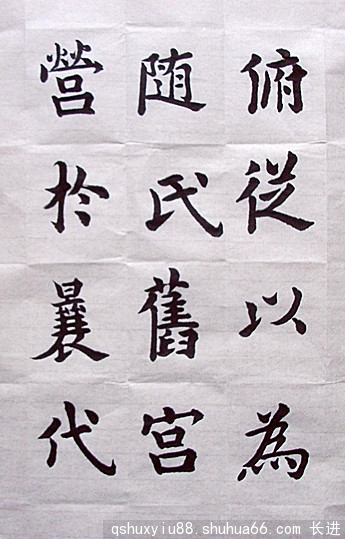 俯從以為
随氏舊宮
營於曩代
qshuxyiu88.shuhua66.com 长进